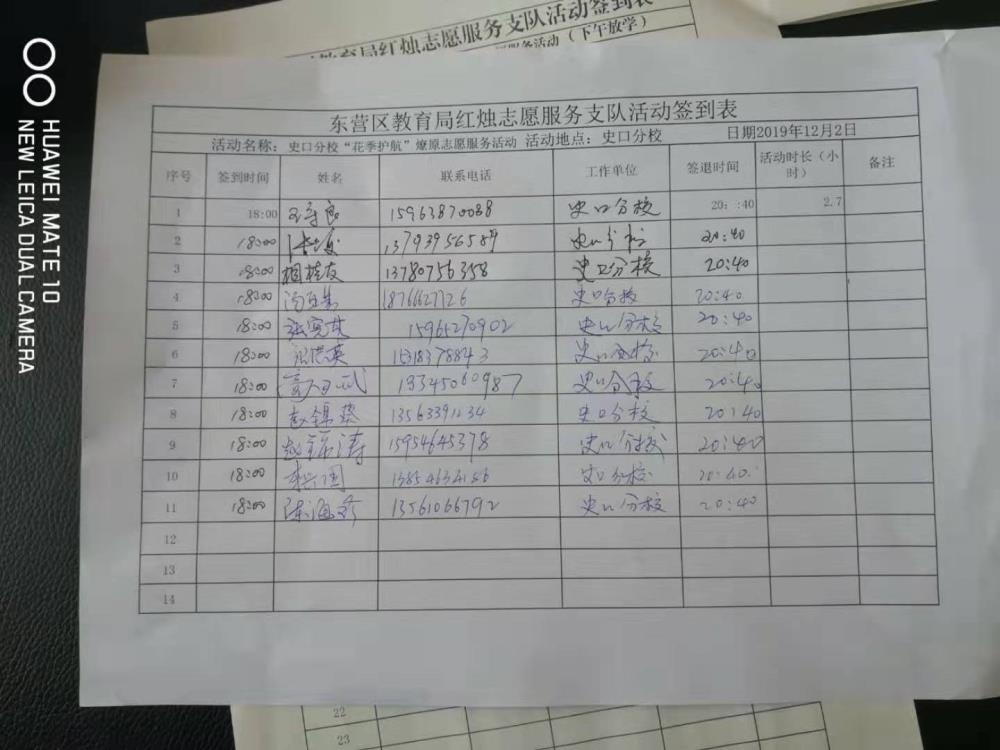 教育局红烛志愿服务支队活动签到表
服务活动（下午放学）
东营区教育局红烛志愿服务支队活动签到表
活动名称： 史口分校“花季护航”燎原志愿服务活动 活动地点： 史口分校 日期2019年12月2日
序号 签到时间 姓名 联系电话 工作单位 签退时间 活动时长（小时） 备注
1 18:00 15963870038 史口分校 20：:40 2.7
2 18:00 13793956589 史口分校 20:40
3 18:00 相桂友 13780756358 史口分校 20:40
4 18:00 18766627726 史口分校 20:40
5 18:00 15965270902 史口分校 20:40
6 18:00 史口分校 20:40
7 18:00 13345060987 史口分校 20:40
8 18:00 赵锦葵 13563391234 史口分校 20:40
9 18:00 赵锦涛 15954645378 史口分校 20:40
10 18:00 李兴国 13854634156 史口分校 20:40
11 18:00 陈海珍 13561066792 史口分校 20:40
12
13
14
22
23
HUAWEI MATE 10
NEW LEICA DUAL CAMERA